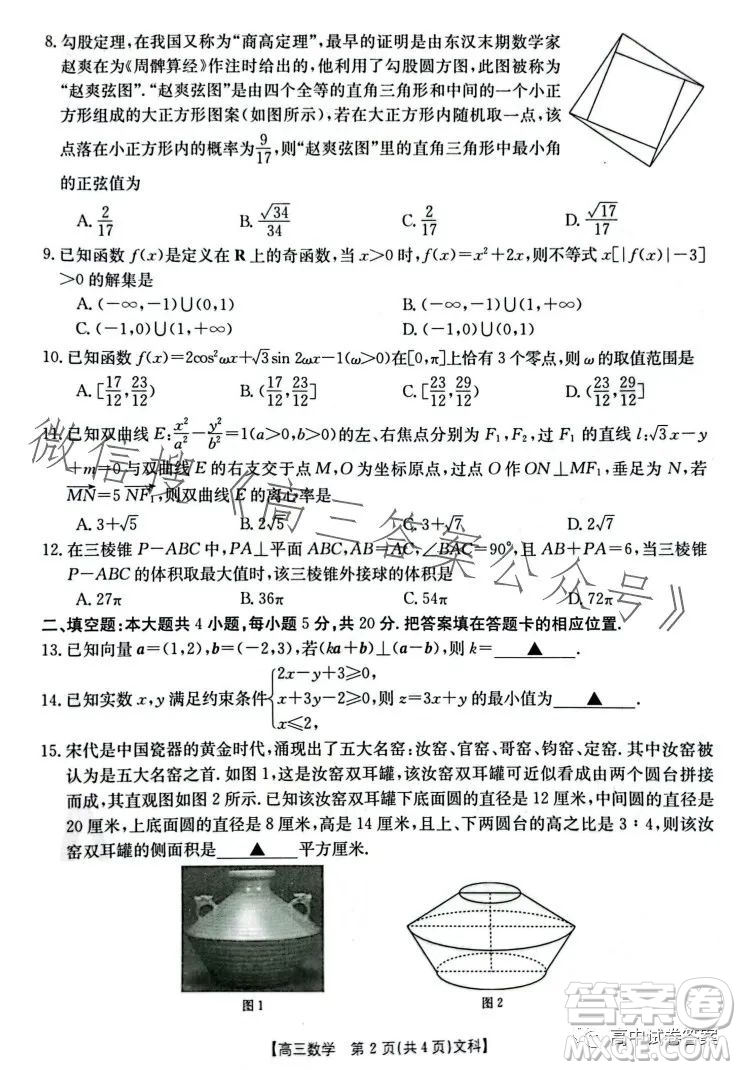 8. 勾股定理,在我国又称为“商高定理”,最早的证明是由东汉末期数学家
赵爽在为《周髀算经》作注时给出的,他利用了勾股圆方图,此图被称为
“赵爽弦图”.“赵爽弦图”是由四个全等的直角三角形和中间的一个小正
方形组成的大正方形图案(如图所示),若在大正方形内随机取一点,该
点落在小正方形内的概率为9/17,则“赵爽弦图”里的直角三角形中最小角
的正弦值为
A. 2/17 B. √34/34 C. 2/17 D. √17/17
9. 已知函数 f(x)是定义在 R 上的奇函数,当 x>0 时,f(x)=x²+2x,则不等式 x[|f(x)|-3]
>0 的解集是
A. (-∞,-1)∪(0,1) B. (-∞,-1)∪(1,+∞)
C. (-1,0)∪(1,+∞) D. (-1,0)∪(0,1)
10. 已知函数 f(x)=2cos²ωx+√3sin 2ωx-1(ω>0)在[0,π]上恰有 3 个零点,则 ω 的取值范围是
A. [17/12,23/12) B. (17/12,23/12] C. [23/12,29/12) D. (23/12,29/12]
11. 已知双曲线 E:x²/a²-y²/b²=1(a>0,b>0)的左、右焦点分别为 F₁,F₂,过 F₁ 的直线 l:√3x-y
+m=0 与双曲线 E 的右支交于点 M,O 为坐标原点,过点 O 作 ON⊥MF₁,垂足为 N,若
MN=5 NF₁,则双曲线 E 的离心率是
A. 3+√5 B. 2√5 C. 3+√7 D. 2√7
12. 在三棱锥 P-ABC 中,PA⊥平面 ABC,AB=AC,∠BAC=90°,且 AB+PA=6,当三棱锥
P-ABC 的体积取最大值时,该三棱锥外接球的体积是
A. 27π B. 36π C. 54π D. 72π
二、填空题:本大题共 4 小题,每小题 5 分,共 20 分. 把答案填在答题卡的相应位置.
13. 已知向量 a=(1,2),b=(-2,3),若(ka+b)⊥(a-b),则 k= ▲ .
14. 已知实数 x,y 满足约束条件{2x-y+3≥0, x+3y-2≥0, x≤2, 则 z=3x+y 的最小值为 ▲ .
15. 宋代是中国瓷器的黄金时代,涌现出了五大名窑:汝窑、官窑、哥窑、钧窑、定窑. 其中汝窑被
认为是五大名窑之首. 如图 1,这是汝窑双耳罐,该汝窑双耳罐可近似看成由两个圆台拼接
而成,其直观图如图 2 所示. 已知该汝窑双耳罐下底面圆的直径是 12 厘米,中间圆的直径是
20 厘米,上底面圆的直径是 8 厘米,高是 14 厘米,且上、下两圆台的高之比是 3∶4,则该汝
窑双耳罐的侧面积是 ▲ 平方厘米.
图 1 图 2
【高三数学 第 2 页(共 4 页)文科】
微信搜《高三答案公众号》
答案圈
高中试卷答案